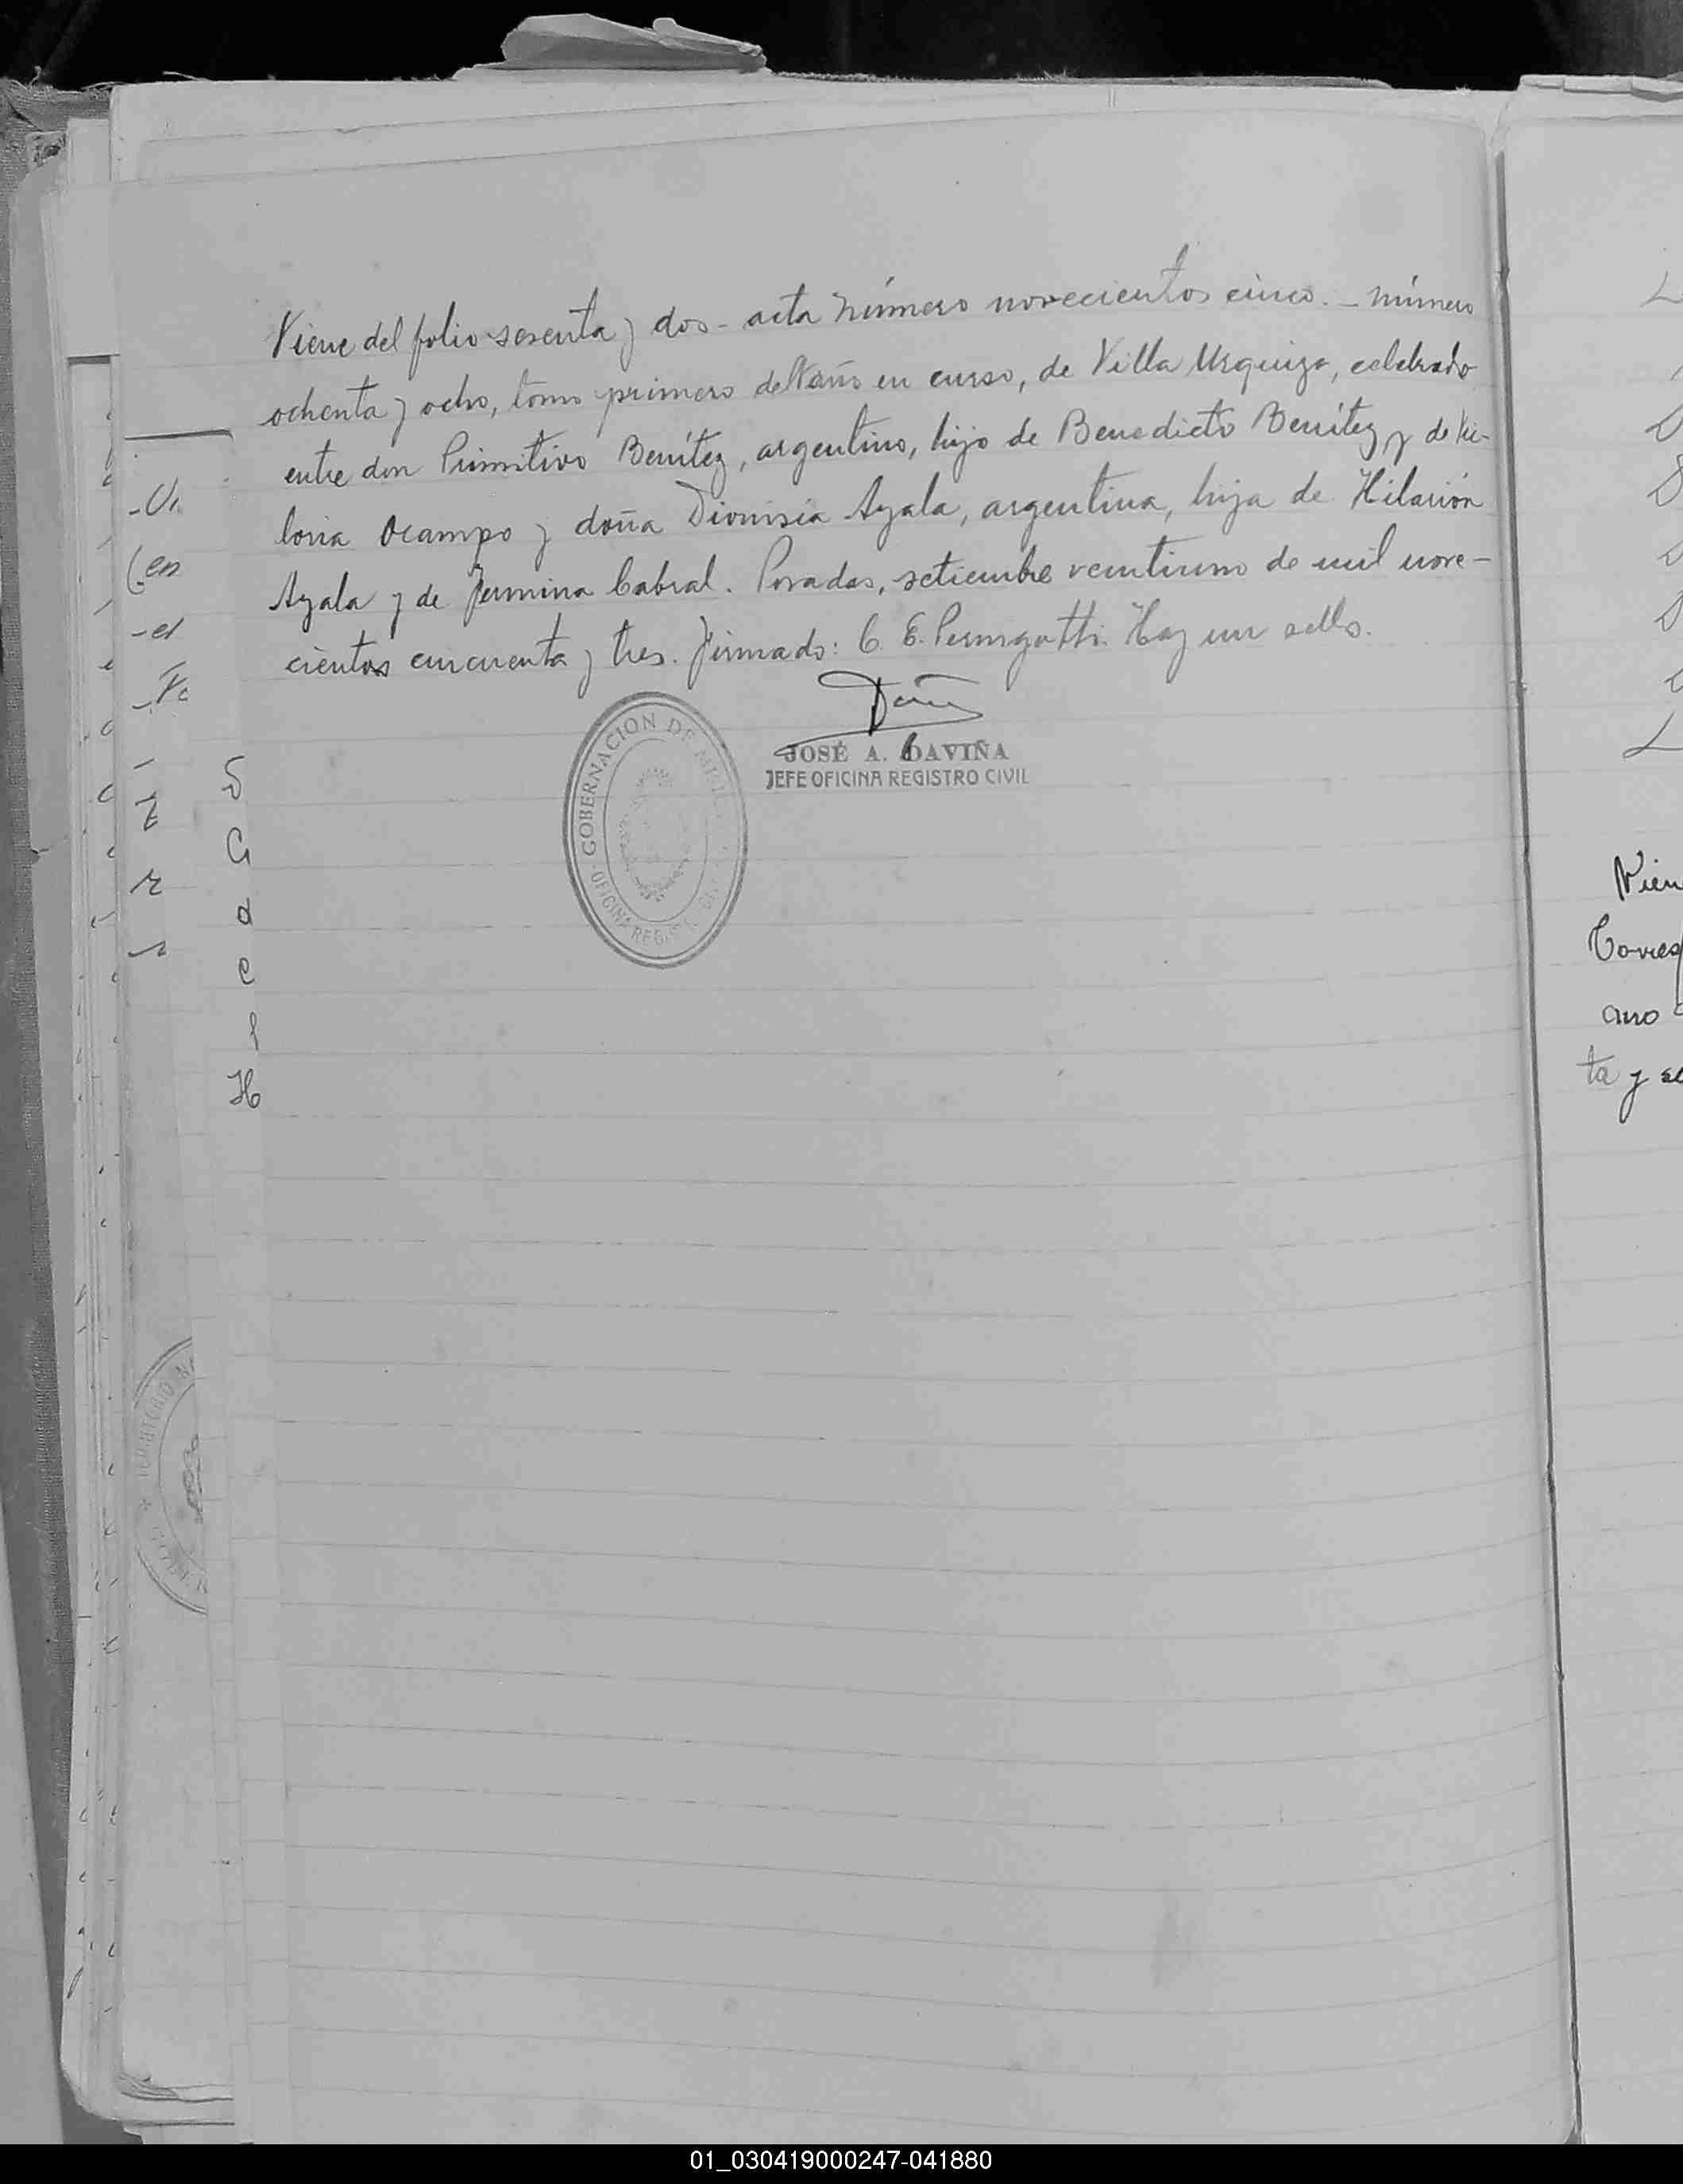 Viene del folio sesenta y dos - acta número novecientos cinco. - número
ochenta y ocho, tomo primero del año en curso, de Villa Urquiza, celebrado
entre don Primitivo Benítez, argentino, hijo de Benedicto Benítez y de Vic-
toria Ocampo y doña Dionisia Ayala, argentina, hija de Hilarión
Ayala y de Fermina Cabral. Posadas, setiembre veintiuno de mil nove-
cientos cincuenta y tres. Firmado: C. E. Pernigotti. Hay un sello.
JOSÉ A. DAVIÑA
JEFE OFICINA REGISTRO CIVIL
GOBERNACION DE
OFICINA
Vien
Corres
ano
ta y se
01_030419000247-041880